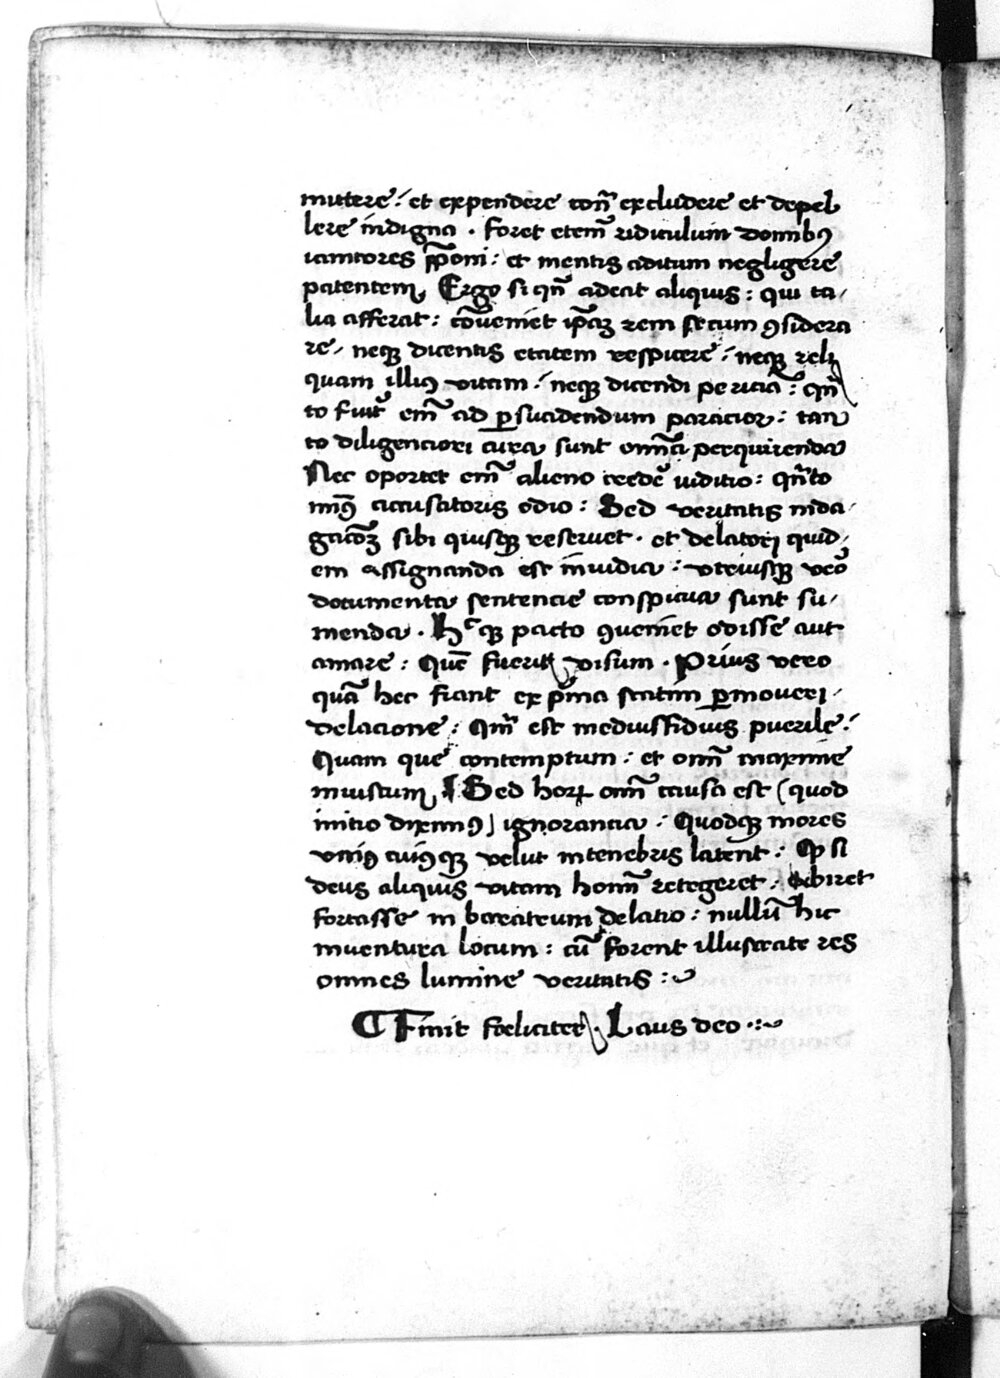 mittere: et expendere con̄ excludere et depel
lere indigna. foret etem̄ ridiculum domibꝯ
ianitores p̄poni: et mentis aditum negligere
patentem. Ergo si qn̄ adeat aliquis: qui ta/
lia afferat: cōveniet ip̄aꝫ rem secum ꝯsidera
re, neqꝫ dicentis etatem respicere: neqꝫ reli
quam illiꝯ vitam: neqꝫ dicendi periciā: qn̄
to fuīt em̄ ad ꝑsuadendum paracior: tan
to diligenciori cura sunt omīa perquirenda
Nec oportet em̄ alieno credē iuditio: qn̄to
minꝯ accusatoris odio: Sed veritatis inda/
gacōꝫ sibi quisqꝫ reservet. et delatori quid/
em assignanda est invidia: utriusqꝫ vēo
documenta sentencie conspicua sunt su/
menda. hͨ qꝫ pacto ꝯveniet odisse aut
amare: quē fuerit visum. Prius vero
quā hec fiant ex p̄ma statim ꝑmoveri/
delacione: qm̄ est mediusfidius puerile:
Quam que contemptum: et omī maxime
iniustum. Sed horꝝ omī causa est (quod
initio diximꝯ) ignorancia: Quodqꝫ mores
uniꝯ cuiꝯqꝫ velut intenebris latent: Qꝫ si
deus aliquis vitam homī retegeret: Abiret
fortasse in barateum delatio: nullū hic
inventura locum: cū forent illustrate res
omnes lumine veritatis:~
¶ Finit foeliciter. Laus deo.:~